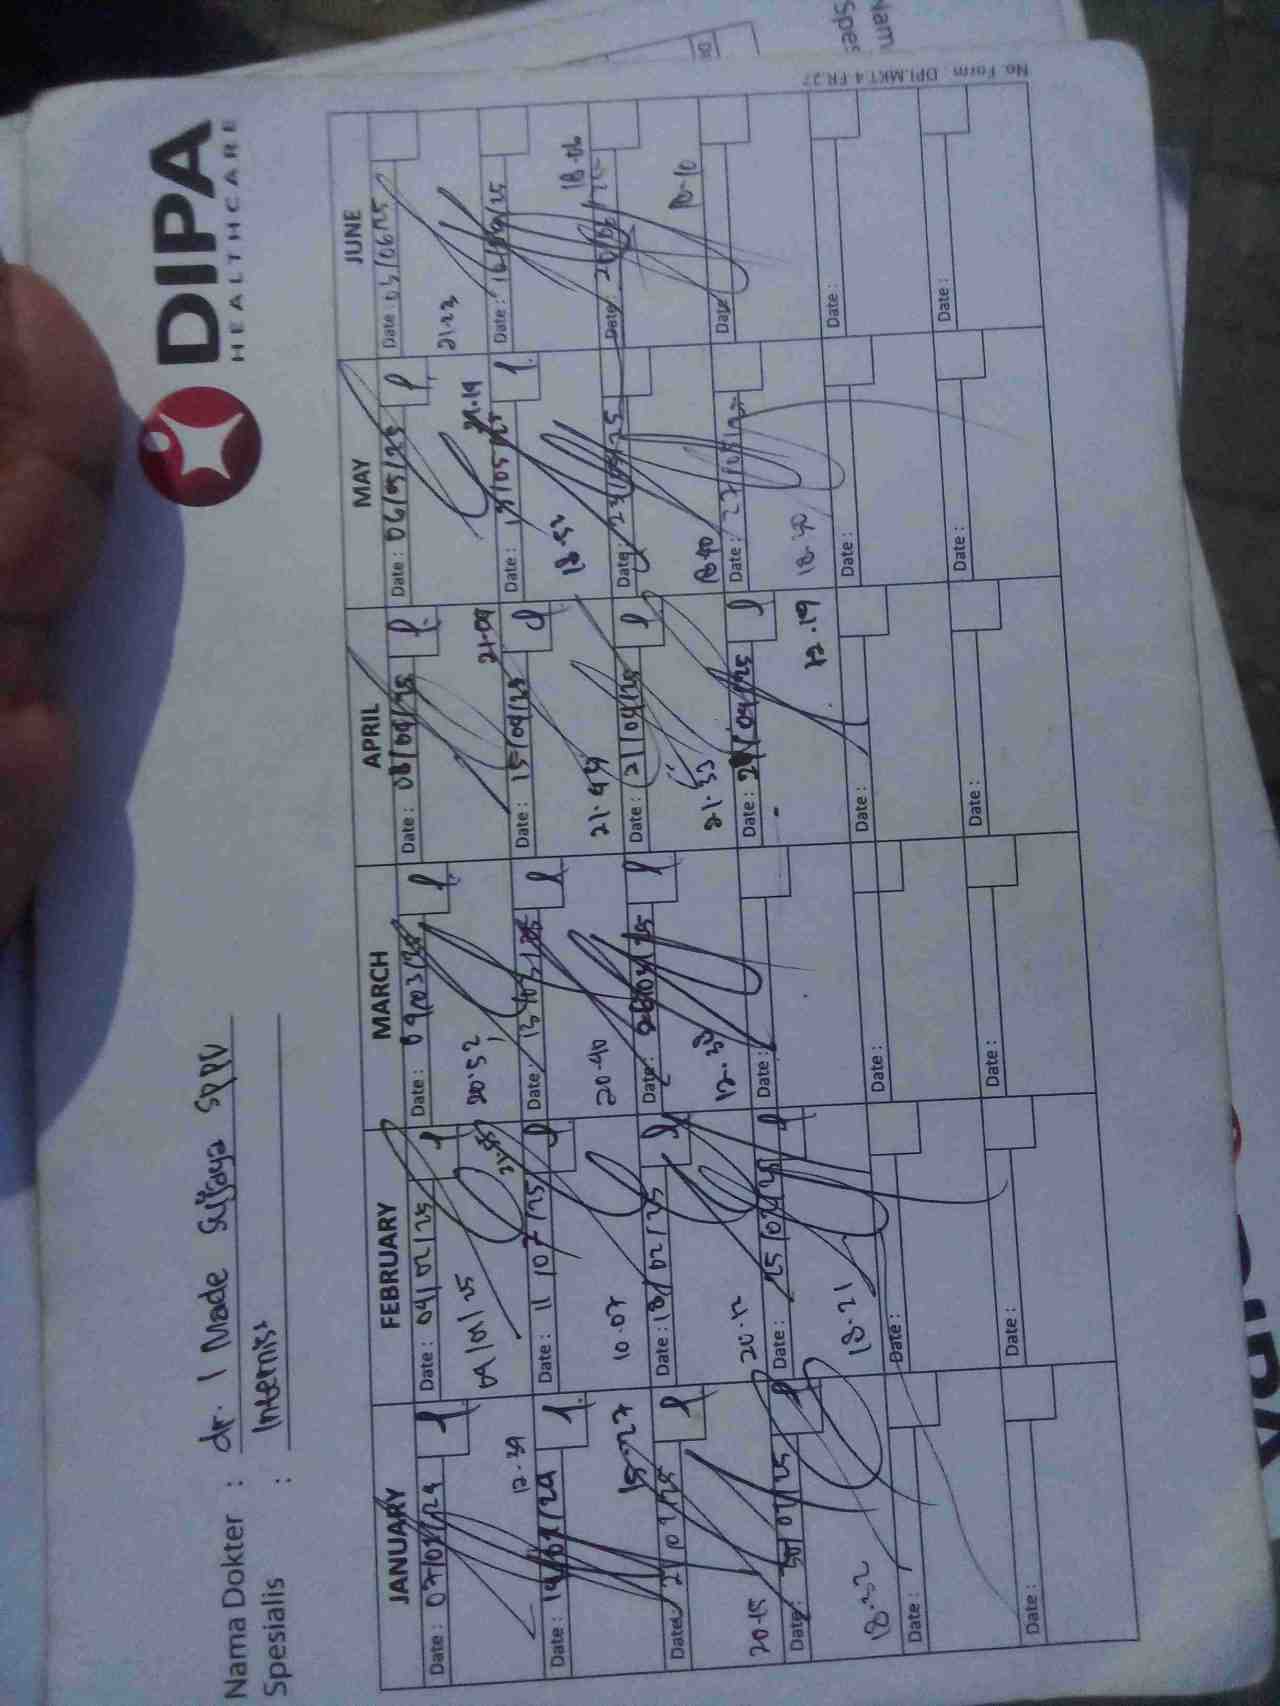 DIPA
HEALTHCARE
Nama Dokter : dr. I Made Sujaya SpPD
Spesialis : Internis
No. Form : DPI.MKT.4.FR.27
JANUARY FEBRUARY MARCH APRIL MAY JUNE
Date : 07/01/24 Date : 04/02/25 Date : Date : 08/04/25 Date : 06/05/25 Date : 03/06/25
12.39 04/01/25 21.55 20.52 21.09 21.19 21.23
Date : 14/01/24 Date : 11/02/25 Date : 13/03/25 Date : 15/04/25 Date : 13/05/25 Date :
15.27 10.07 20.40 21.44 18.52 18.06
Date : 21/01/25 Date : 18/02/25 Date : Date : 21/04/25 Date : Date : 20/06/25
20.15 20.12 12.30 21.33 18.40 18.10
Date : 30/01/25 Date : 25/02/25 Date : Date : Date : 27/05/25 Date
18.32 18.21 12.19 18.30
Date : Date : Date : Date : Date : Date :
Date : Date : Date : Date : Date : Date :
Nam
Spes